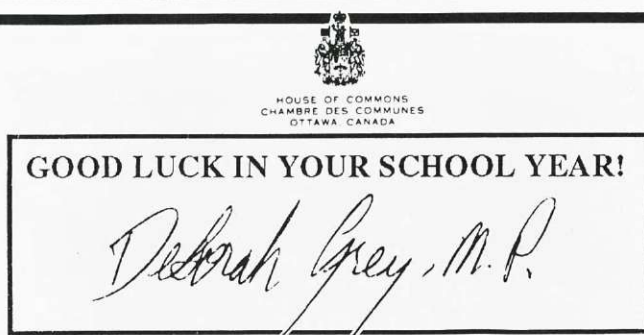 HOUSE OF COMMONS
CHAMBRE DES COMMUNES
OTTAWA, CANADA
GOOD LUCK IN YOUR SCHOOL YEAR!
Deborah Grey, M.P.